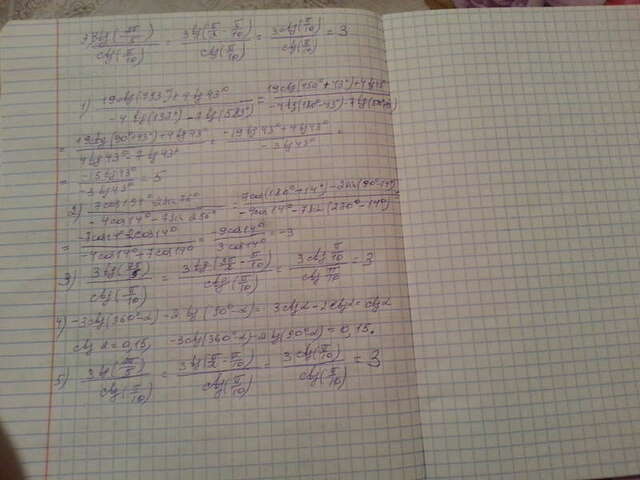 3tg(2π/5) / ctg(π/10) = 3tg(π/2 - π/10) / ctg(π/10) = 3ctg(π/10) / ctg(π/10) = 3
1) 19ctg(493°)+4tg43° / -4tg(133°)-7tg(583°) = 19ctg(450°+43°)+4tg43°
= 19ctg(90°+43°)+4tg43° / 4tg43°-7tg43° = -19tg43°+4tg43° / -3tg43° =
= -15tg43° / -3tg43° = 5
2) 7cos194°-2sin76° / -4cos14°-7sin256° = 7cos(180°+14°)-2sin(90°-14°) / -4cos14°-7sin(270°-14°)
= -7cos14°-2cos14° / -4cos14°+7cos14° = -9cos14° / 3cos14° = -3
3) 3tg(2π/5) / ctg(π/10) = 3tg(π/2 - π/10) / ctg(π/10) = 3ctg π/10 / ctg π/10 = 3
4) -3ctg(360°-α)-2tg(90°-α) = 3ctgα-2ctgα = ctgα
ctgα = 0,15, -3ctg(360°-α)-2tg(90°-α) = 0,15.
5) 3tg(2π/5) / ctg(π/10) = 3tg(π/2 - π/10) / ctg(π/10) = 3ctg(π/10) / ctg(π/10) = 3